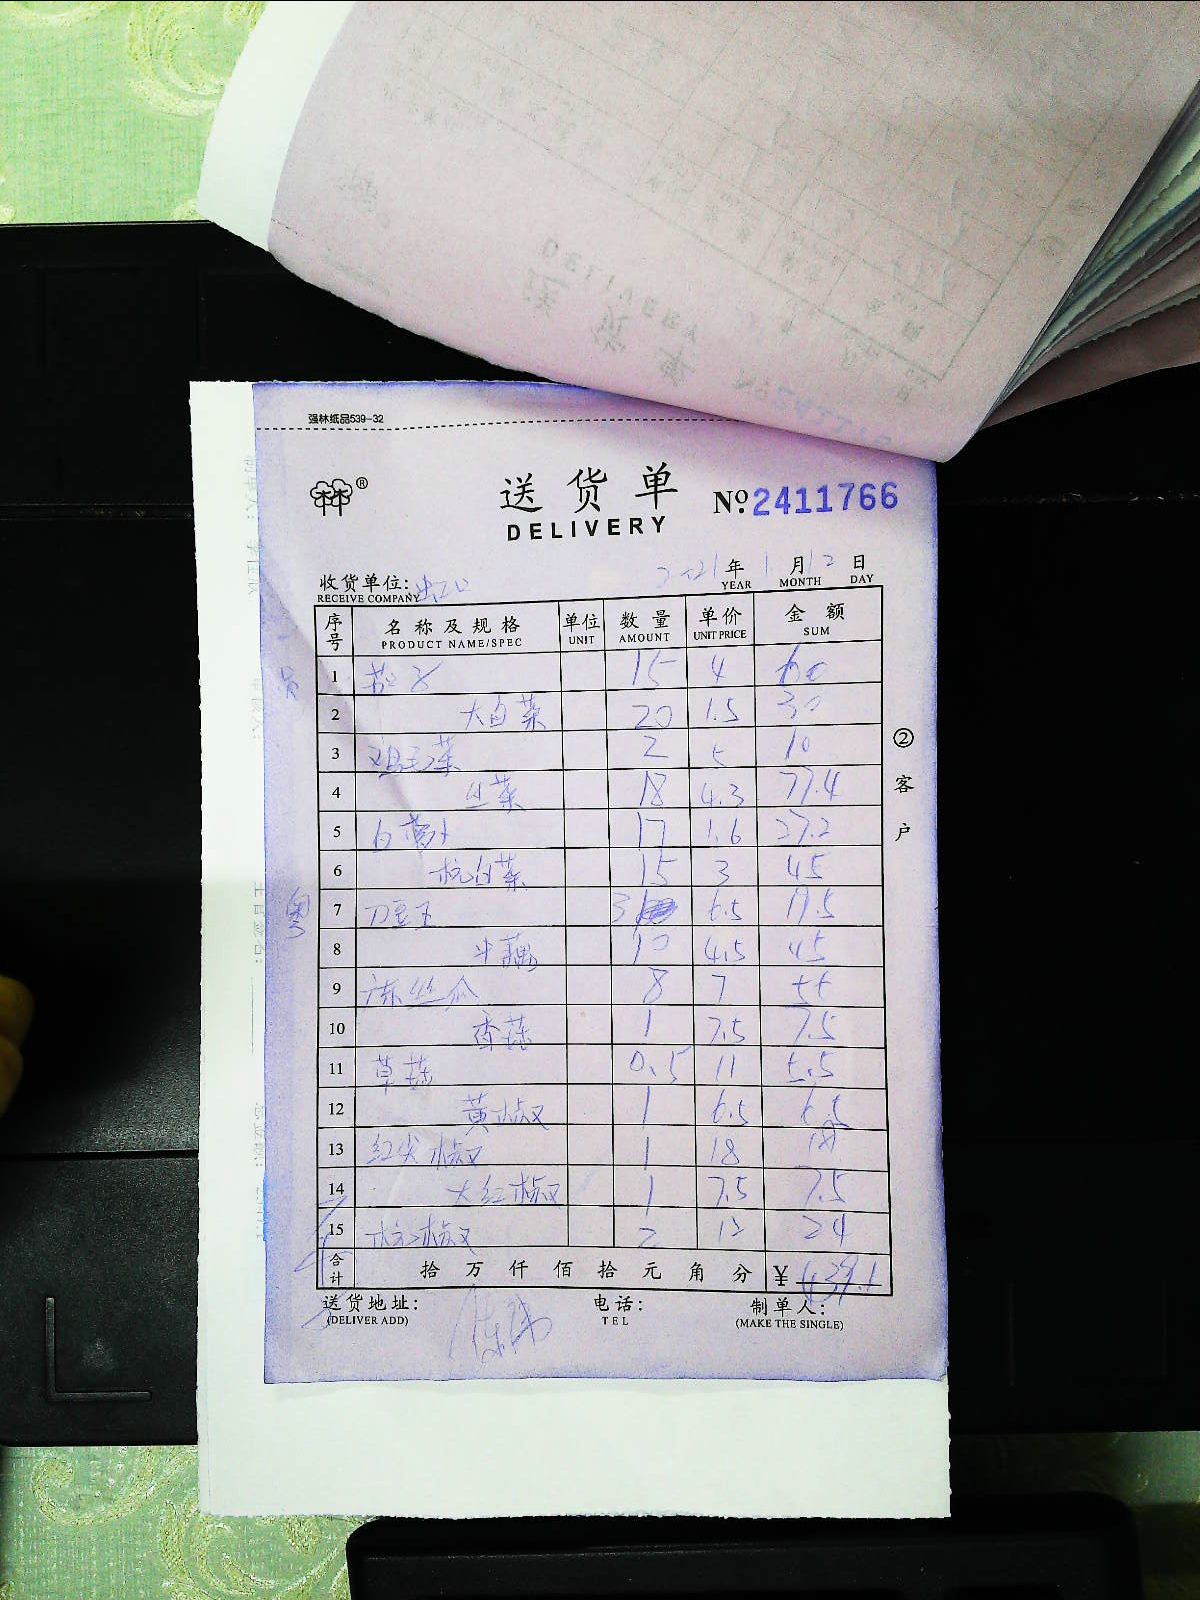 强林纸品539-32
林®
送货单
№ 2411766
DELIVERY
2021年 1月12日
YEAR MONTH DAY
收货单位:
RECEIVE COMPANY
序号 名称及规格 单位 数量 单价 金额
PRODUCT NAME/SPEC UNIT AMOUNT UNIT PRICE SUM
1 茄子 15 4 60
2 大白菜 20 1.5 30
3 鸡毛菜 2 5 10
4 生菜 18 4.3 77.4
5 白萝卜 17 1.6 27.2
6 杭白菜 15 3 45
7 刀豆王 3 6.5 19.5
8 藕 10 4.5 45
9 冻丝瓜 8 7 56
10 香菇 1 7.5 7.5
11 草菇 0.5 11 5.5
12 黄椒 1 6.5 6.5
13 红尖椒 1 18 18
14 大红椒 1 7.5 7.5
15 杭椒 2 12 24
合计 拾万仟佰拾元角分 ¥ 439.1
②客户
送货地址: 电话: 制单人:
(DELIVER ADD) TEL (MAKE THE SINGLE)